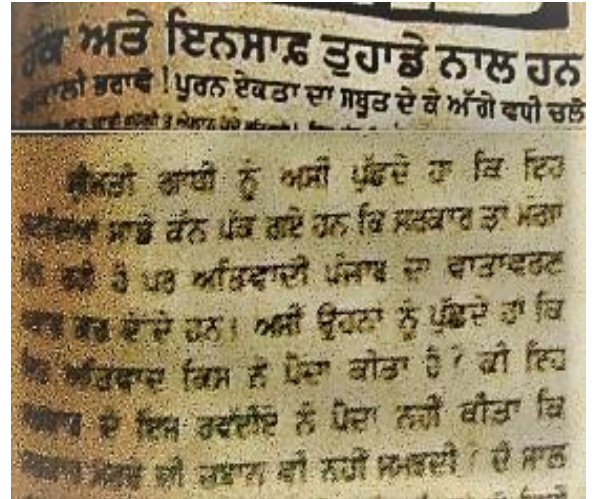 ਹੱਕ ਅਤੇ ਇਨਸਾਫ਼ ਤੁਹਾਡੇ ਨਾਲ ਹਨ
ਅਕਾਲੀ ਭਰਾਵੋ ! ਪੂਰਨ ਏਕਤਾ ਦਾ ਸਬੂਤ ਦੇ ਕੇ ਅੱਗੇ ਵਧੀ ਚਲੋ
ਸ੍ਰੀਮਤੀ ਗਾਂਧੀ ਨੂੰ ਅਸੀਂ ਪੁੱਛਦੇ ਹਾਂ ਕਿ ਇਹ
ਸਾਡੇ ਕੰਨ ਪੱਕ ਗਏ ਹਨ ਕਿ ਸਰਕਾਰ ਤਾਂ ਮੰਗਾਂ
ਰਹੀ ਹੈ ਪਰ ਅਤਿਵਾਦੀ ਪੰਜਾਬ ਦਾ ਵਾਤਾਵਰਣ
ਕਰ ਦੇਂਦੇ ਹਨ। ਅਸੀਂ ਉਹਨਾਂ ਨੂੰ ਪੁੱਛਦੇ ਹਾਂ ਕਿ
ਅਤਿਵਾਦ ਕਿਸ ਨੇ ਪੈਦਾ ਕੀਤਾ ਹੈ ? ਕੀ ਇਹ
ਦੇ ਇਸ ਰਵੱਈਏ ਨੇ ਪੈਦਾ ਨਹੀਂ ਕੀਤਾ ਕਿ
ਦੀ ਜ਼ਬਾਨ ਹੀ ਨਹੀਂ ਸਮਝਦੀ ? ਦੋ ਸਾਲ